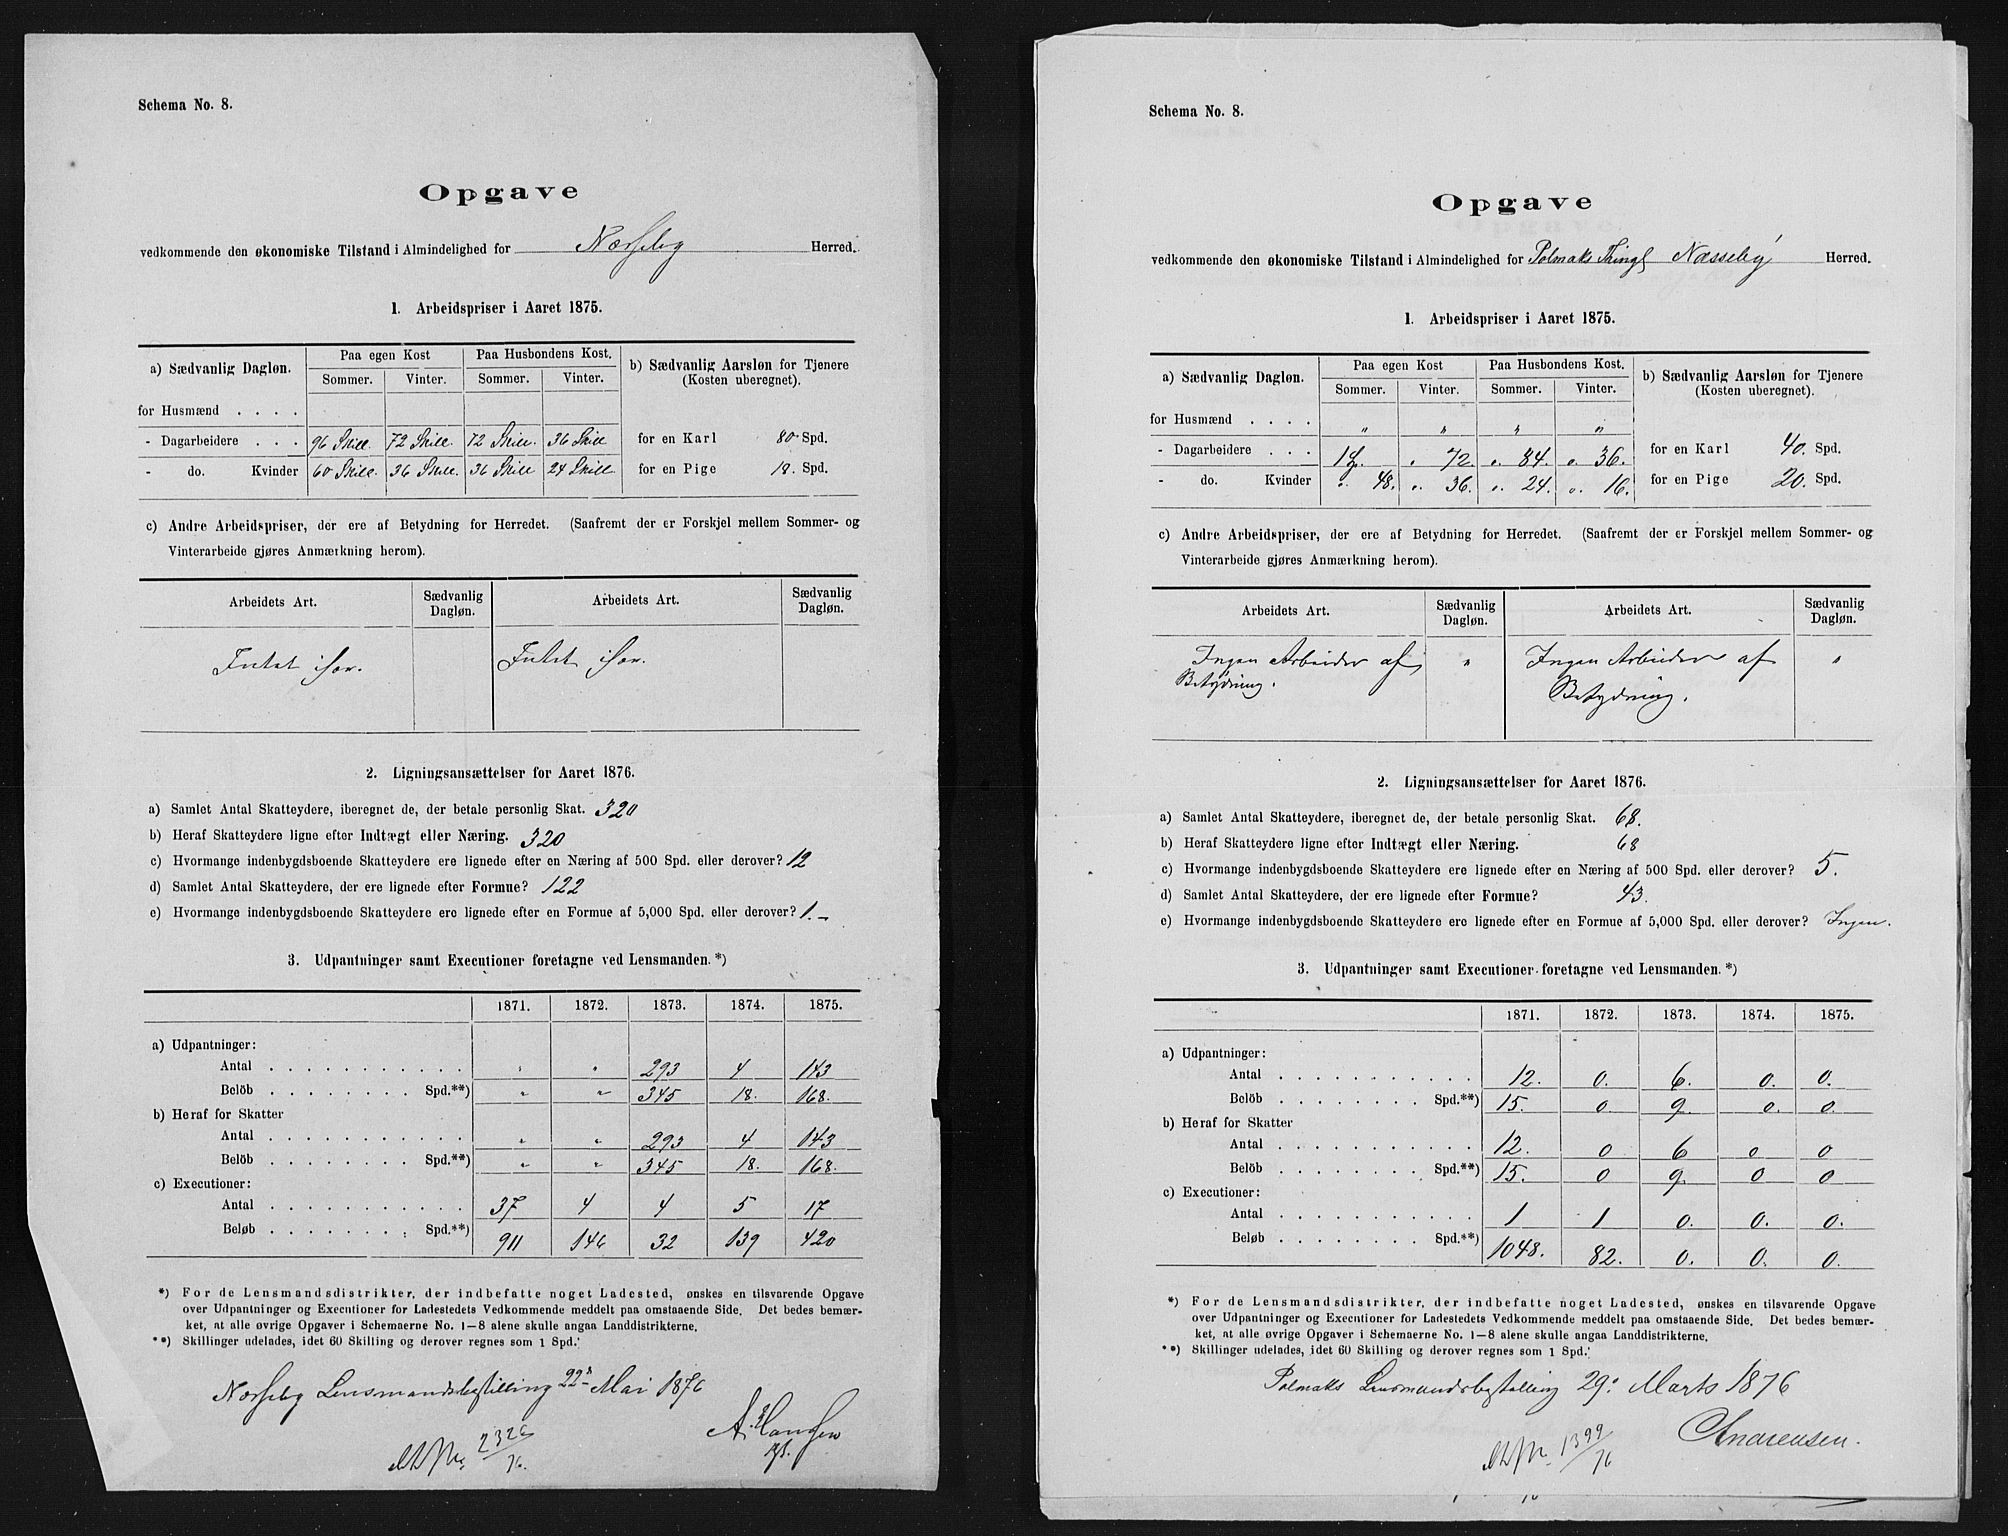 Schema No. 8.
Opgave
vedkommende den økonomiske Tilstand i Almindelighed for Næsseby Herred.
1. Arbeidspriser i Aaret 1875.
a) Sædvanlig Dagløn. Paa egen Kost Paa Husbondens Kost. b) Sædvanlig Aarsløn for Tjenere
Sommer. Vinter. Sommer. Vinter. (Kosten uberegnet).
for Husmænd . . . .
- Dagarbeidere . . . 96 Skill. 72 Skill. 72 Skill. 36 Skill for en Karl 80 Spd.
- do. Kvinder 60 Skill. 36 Skill. 36 Skill 24 Skill for en Pige 18. Spd.
c) Andre Arbeidspriser, der ere af Betydning for Herredet. (Saafremt der er Forskjel mellem Sommer- og
Vinterarbeide gjøres Anmærkning herom).
Arbeidets Art. Sædvanlig Dagløn. Arbeidets Art. Sædvanlig Dagløn.
Intet Intet
2. Ligningsansættelser for Aaret 1876.
a) Samlet Antal Skatteydere, iberegnet de, der betale personlig Skat. 320
b) Heraf Skatteydere ligne efter Indtægt eller Næring. 320
c) Hvormange indenbygdsboende Skatteydere ere lignede efter en Næring af 500 Spd. eller derover? 12
d) Samlet Antal Skatteydere, der ere lignede efter Formue? 122
e) Hvormange indenbygdsboende Skatteydere ere lignede efter en Formue af 5,000 Spd. eller derover? 1.-
3. Udpantninger samt Executioner foretagne ved Lensmanden.*)
1871. 1872. 1873. 1874. 1875.
a) Udpantninger:
Antal . . . . . . . . . . . " " 293 4 143
Belöb . . . . . . . . Spd.**) " " 345 18. 168.
b) Heraf for Skatter
Antal . . . . . . . . . . . " " 293 4 143
Belöb . . . . . . . . Spd.**) " " 345 18. 168.
c) Executioner:
Antal . . . . . . . . . . . 37 4 4 5 17
Beløb . . . . . . . . Spd.**) 911 146 32 139 420
*) For de Lensmandsdistrikter, der indbefatte noget Ladested, ønskes en tilsvarende Opgave
over Udpantninger og Executioner for Ladestedets Vedkommende meddelt paa omstaaende Side. Det bedes bemær-
ket, at alle øvrige Opgaver i Schemaerne No. 1—8 alene skulle angaa Landdistrikterne.
**) Skillinger udelades, idet 60 Skilling og derover regnes som 1 Spd.
Næsseby Lensmandsbestilling 22 Mai 1876
A. Hansen
2326/76.
Schema No. 8.
Opgave
vedkommende den økonomiske Tilstand i Almindelighed for Polmaks Thingl Næsseby Herred.
1. Arbeidspriser i Aaret 1875.
a) Sædvanlig Dagløn. Paa egen Kost Paa Husbondens Kost. b) Sædvanlig Aarsløn for Tjenere
Sommer. Vinter. Sommer. Vinter. (Kosten uberegnet).
for Husmænd . . . . " " " "
- Dagarbeidere . . . " 72. " 84. " 36. for en Karl 40. Spd.
- do. Kvinder " 48. " 36. " 24. " 16. for en Pige 20. Spd.
c) Andre Arbeidspriser, der ere af Betydning for Herredet. (Saafremt der er Forskjel mellem Sommer- og
Vinterarbeide gjøres Anmærkning herom).
Arbeidets Art. Sædvanlig Dagløn. Arbeidets Art. Sædvanlig Dagløn.
Ingen Arbeider af " Ingen Arbeider af "
Betydning. Betydning.
2. Ligningsansættelser for Aaret 1876.
a) Samlet Antal Skatteydere, iberegnet de, der betale personlig Skat. 68.
b) Heraf Skatteydere ligne efter Indtægt eller Næring. 68
c) Hvormange indenbygdsboende Skatteydere ere lignede efter en Næring af 500 Spd. eller derover? 5.
d) Samlet Antal Skatteydere, der ere lignede efter Formue? 43.
e) Hvormange indenbygdsboende Skatteydere ere lignede efter en Formue af 5,000 Spd. eller derover? Ingen.
3. Udpantninger samt Executioner foretagne ved Lensmanden.*)
1871. 1872. 1873. 1874. 1875.
a) Udpantninger:
Antal . . . . . . . . . . . 12. 0. 6. 0. 0.
Belöb . . . . . . . . Spd.**) 15. 0 9. 0. 0.
b) Heraf for Skatter
Antal . . . . . . . . . . . 12. 0 6 0 0
Belöb . . . . . . . . Spd.**) 15. 0 9. 0 0
c) Executioner:
Antal . . . . . . . . . . . 1 1 0. 0. 0.
Beløb . . . . . . . . Spd.**) 1048. 82. 0. 0. 0.
*) For de Lensmandsdistrikter, der indbefatte noget Ladested, ønskes en tilsvarende Opgave
over Udpantninger og Executioner for Ladestedets Vedkommende meddelt paa omstaaende Side. Det bedes bemær-
ket, at alle øvrige Opgaver i Schemaerne No. 1—8 alene skulle angaa Landdistrikterne.
**) Skillinger udelades, idet 60 Skilling og derover regnes som 1 Spd.
Polmaks Lensmandsbestilling 29. Marts 1876
Andreassen.
1399/76